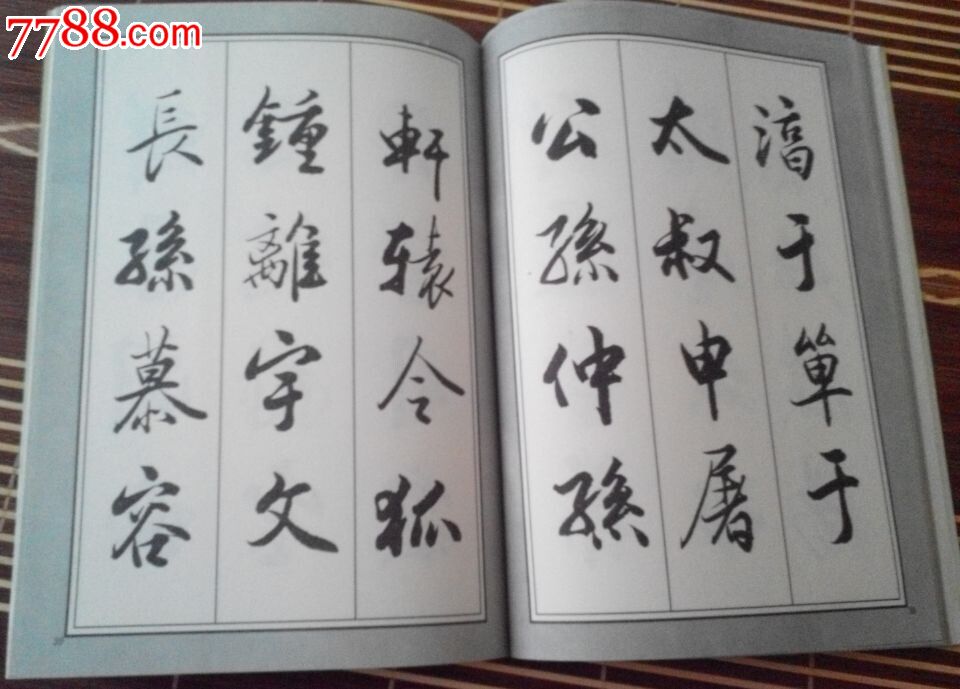 7788.com
湻于單于
太叔申屠
公孫仲孫
軒轅令狐
鍾離宇文
長孫慕容